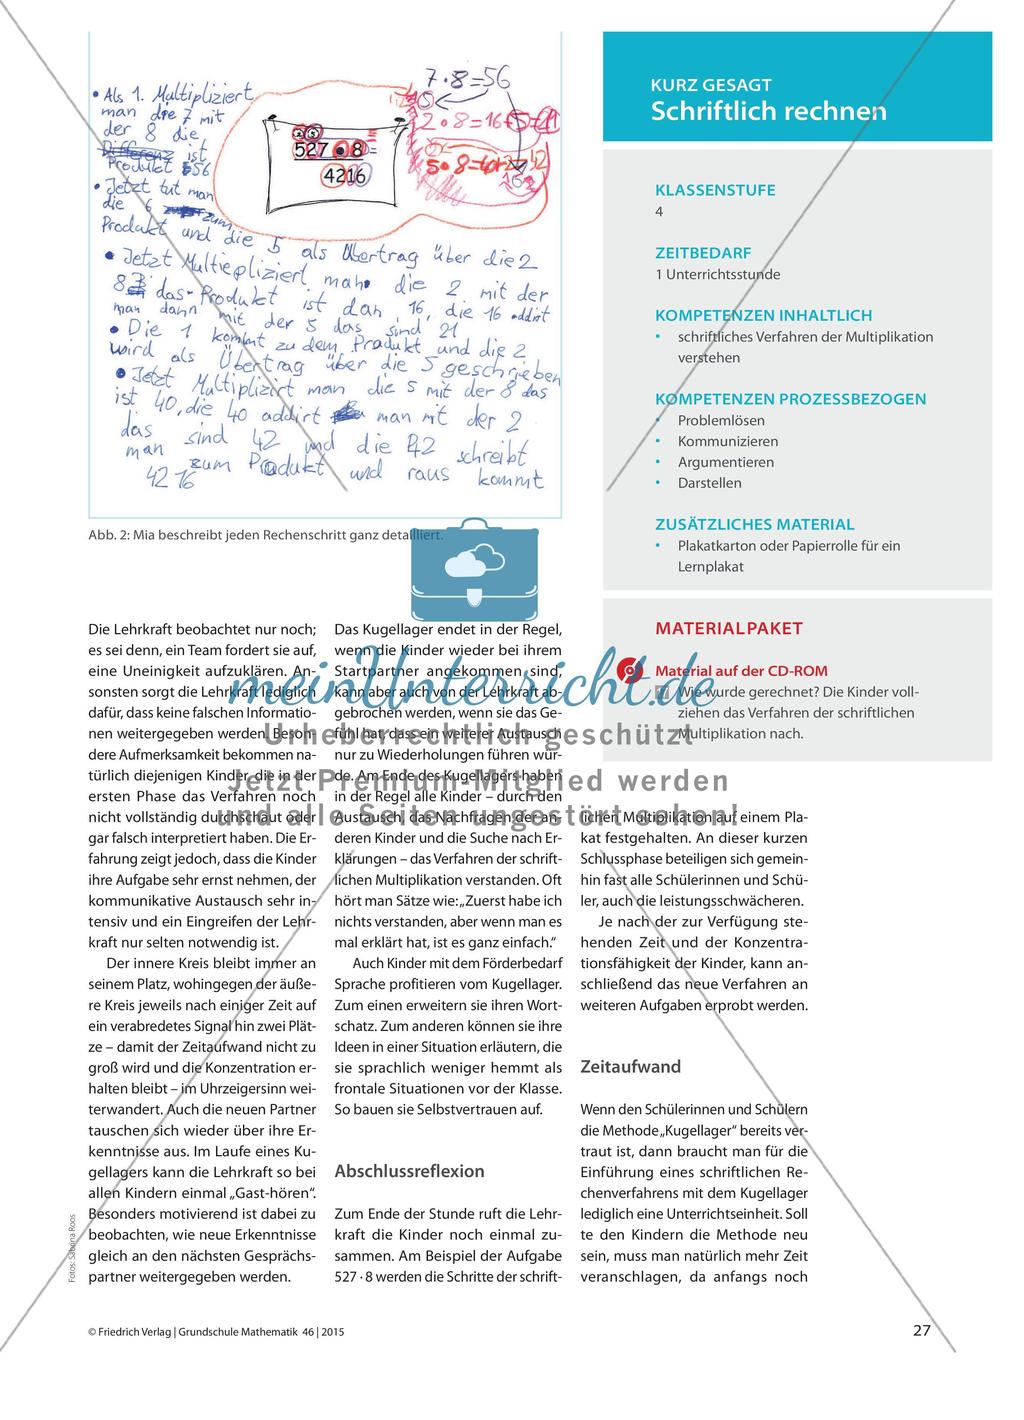 • Als 1. Multipliziert
man die 7 mit
der 8 die
Differenz ist
Produkt 56
• Jetzt tut man
die 6 zum
Produkt und die 5 als Übertrag über die 2
• Jetzt Multiepliziert man die 2 mit der
8 das Produkt ist dan 16, die 16 addirt
man dann mit der 5 das sind 21
• Die 1 kommt zu dem Produkt und die 2
wird als Übertrag über die 5 geschrieben
• Jetzt Multiplizirt man die 5 mit der 8 das
ist 40, die 40 addirt man mit der 2
das sind 42 und die 42 schreibt
man zum Produkt und raus kommt
4216
527 • 8 =
4216
7 • 8 = 56
2 • 8 = 16 + 5 = 21
Abb. 2: Mia beschreibt jeden Rechenschritt ganz detailliert.
KURZ GESAGT
Schriftlich rechnen
KLASSENSTUFE
4
ZEITBEDARF
1 Unterrichtsstunde
KOMPETENZEN INHALTLICH
• schriftliches Verfahren der Multiplikation
verstehen
KOMPETENZEN PROZESSBEZOGEN
• Problemlösen
• Kommunizieren
• Argumentieren
• Darstellen
ZUSÄTZLICHES MATERIAL
• Plakatkarton oder Papierrolle für ein
Lernplakat
MATERIALPAKET
Material auf der CD-ROM
Wie wurde gerechnet? Die Kinder voll-
ziehen das Verfahren der schriftlichen
Multiplikation nach.
Die Lehrkraft beobachtet nur noch;
es sei denn, ein Team fordert sie auf,
eine Uneinigkeit aufzuklären. An-
sonsten sorgt die Lehrkraft lediglich
dafür, dass keine falschen Informatio-
nen weitergegeben werden. Beson-
dere Aufmerksamkeit bekommen na-
türlich diejenigen Kinder, die in der
ersten Phase das Verfahren noch
nicht vollständig durchschaut oder
gar falsch interpretiert haben. Die Er-
fahrung zeigt jedoch, dass die Kinder
ihre Aufgabe sehr ernst nehmen, der
kommunikative Austausch sehr in-
tensiv und ein Eingreifen der Lehr-
kraft nur selten notwendig ist.
Der innere Kreis bleibt immer an
seinem Platz, wohingegen der äuße-
re Kreis jeweils nach einiger Zeit auf
ein verabredetes Signal hin zwei Plät-
ze – damit der Zeitaufwand nicht zu
groß wird und die Konzentration er-
halten bleibt – im Uhrzeigersinn wei-
terwandert. Auch die neuen Partner
tauschen sich wieder über ihre Er-
kenntnisse aus. Im Laufe eines Ku-
gellagers kann die Lehrkraft so bei
allen Kindern einmal „Gast-hören“.
Besonders motivierend ist dabei zu
beobachten, wie neue Erkenntnisse
gleich an den nächsten Gesprächs-
partner weitergegeben werden.
Das Kugellager endet in der Regel,
wenn die Kinder wieder bei ihrem
Startpartner angekommen sind,
kann aber auch von der Lehrkraft ab-
gebrochen werden, wenn sie das Ge-
fühl hat, dass ein weiterer Austausch
nur zu Wiederholungen führen wür-
de. Am Ende des Kugellagers haben
in der Regel alle Kinder – durch den
Austausch, das Nachfragen der an-
deren Kinder und die Suche nach Er-
klärungen – das Verfahren der schrift-
lichen Multiplikation verstanden. Oft
hört man Sätze wie: „Zuerst habe ich
nichts verstanden, aber wenn man es
mal erklärt hat, ist es ganz einfach.“
Auch Kinder mit dem Förderbedarf
Sprache profitieren vom Kugellager.
Zum einen erweitern sie ihren Wort-
schatz. Zum anderen können sie ihre
Ideen in einer Situation erläutern, die
sie sprachlich weniger hemmt als
frontale Situationen vor der Klasse.
So bauen sie Selbstvertrauen auf.
Abschlussreflexion
Zum Ende der Stunde ruft die Lehr-
kraft die Kinder noch einmal zu-
sammen. Am Beispiel der Aufgabe
527 · 8 werden die Schritte der schrift-
lichen Multiplikation auf einem Pla-
kat festgehalten. An dieser kurzen
Schlussphase beteiligen sich gemein-
hin fast alle Schülerinnen und Schü-
ler, auch die leistungsschwächeren.
Je nach der zur Verfügung ste-
henden Zeit und der Konzentra-
tionsfähigkeit der Kinder, kann an-
schließend das neue Verfahren an
weiteren Aufgaben erprobt werden.
Zeitaufwand
Wenn den Schülerinnen und Schülern
die Methode „Kugellager“ bereits ver-
traut ist, dann braucht man für die
Einführung eines schriftlichen Re-
chenverfahrens mit dem Kugellager
lediglich eine Unterrichtseinheit. Soll
te den Kindern die Methode neu
sein, muss man natürlich mehr Zeit
veranschlagen, da anfangs noch
meinUnterricht.de
Urheberrechtlich geschützt
Jetzt Premium-Mitglied werden
und alle Seiten ungestört sehen!
Fotos: Sabrina Roos
© Friedrich Verlag | Grundschule Mathematik 46 | 2015
27